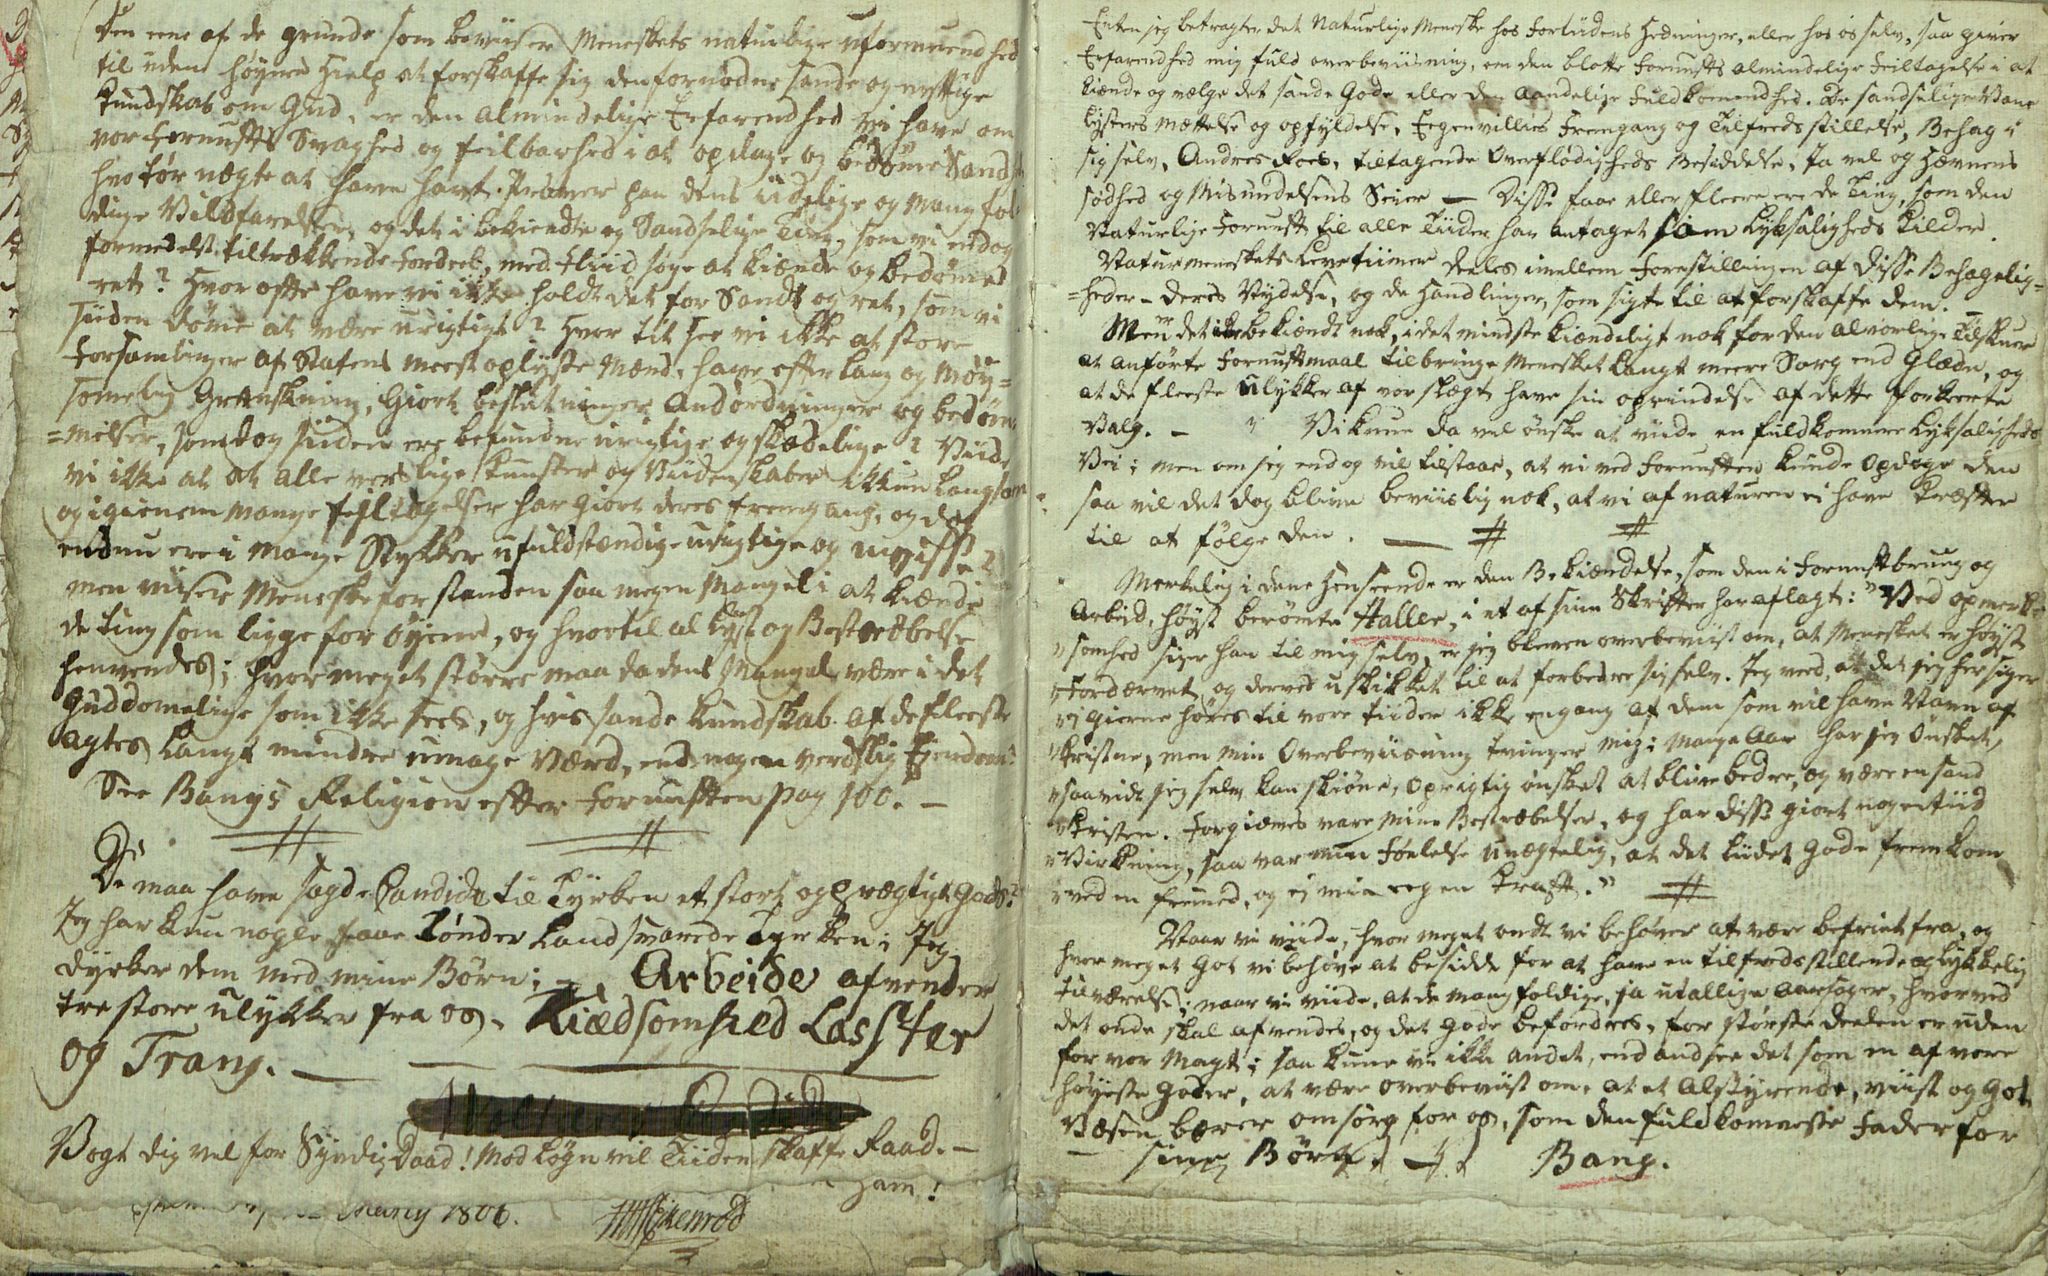 Den eene af de grunde som beviiser Meneskets naturlige uformuenhed
til uden høyere Hielp at forskaffe sig den fornødne sande og nyttige
Kundskab om Gud, er den almindelige Erfarenhed vii have om
vor Fornufts Svaghed og feilbarhed i at opdage og bedømme Sand
hvo tør nægte at have havt Prøver paa dens idelige og mangfol
dige Vildfarelser, og det i bekiendte og Sandselige Ting, som vi endog
formedelst tiltrækkende fordeel, med Fliid søge at kiende og bedømme
ret? Hvor ofte have vi ikke holdt det for Sandt og ret, som vi
siiden dømte at være urigtigt? Hvor tit see vi ikke at store
Forsamlinger af Statens meest oplyste Mænd, have efter lang og møy=
sommelig Granskning, giort beslutninger Anordninger og bedøm
=melser, som dog siiden ere befundne urigtige og skadelige? Viide
vi ikke at at alle verslige kunster og Viidenskaber ikkun langsom
og igienem mange fejltagelser har giort deres fremgang, og det
endnu ere i mange Stykker ufuldstændige urigtige og uvisse?
men viiser Meneskeforstanden saa megen Mangel i at kiende
de ting som ligge for øyene, og hvortil al Lyst og Bestræbelse
henvendes; hvor meget større maa da dens Mangel være i det
Guddomelige som ikke sees, og hvis sande kundskab af de fleeste
agtes langt mindre umage værd, end nogen verdslig Ejendom?
See Bangs Religion efter Fornuften pag 100. —
De maa have sagde Candide til Tyrken et stort og prægtigt Gods?
Jeg har kun nogle faae Tønder Land svarede Tyrken; Jeg
dyrker dem med mine Børn; Arbeide afvender
tre store ulykker fra os, Kiedsomhed Laster
og Trang. —
Vogt dig vel for Syndig Daad! Mod Løgn vil Tiiden skaffe Raad. —
ham!
Marty 1806.
Enten jeg betragter det Naturlige Meneske hos Fortiidens Hedninger, eller hos os selv, saa giver
Erfarendhed mig fuld overbeviisning, om den blotte Fornufts almindelige Feiltagelse i at
kiende og vælge det sande Gode eller den aandelige Fuldkomendhed. De sandselige Vane
Lysters Mættelse og opfyldelse, Eegenvillies Fremgang og Tilfredsstillelse, Behag i
sig selv, Andres Roes, tiltagende Overflødigheds Besiddelse, Ja vel og Hævnens
sødhed og Misundelsens Seier — Disse faae eller fleere ere de Ting, som den
Naturlige Fornuft til alle Tiider har antaget som Lyksaligheds Kilder.
Naturmeneskets Levetiimer deeles imellem Forestillingen af disse Behagelig=
=heder — deres Nydelse, og de Handlinger, som sigte til at forskaffe dem.
Men det er bekiendt nok, i det mindste kiendeligt nok for den alvorlige Tilskuer
at anførte Fornuftmaal tilbringe Mennesket langt meere Sorg end Glæde, og
at de fleeste ulykker af vor slægt have sin oprindelse af dette forkeerte
Valg. — Vi kune da vel ønske at viide en fuldkomnere Lyksaligheds
Vei; men om jeg endog vil tilstaae, at vi ved fornuften kunde opdage den
saa vil det dog blive beviislig nok, at vi af naturen ei have Kræfter
til at følge den. —
Merkelig i dene Henseende er den Bekiendelse, som den i Fornuftbrug og
Arbeid, høyst berømte Haller, i et af sine Skrifter har aflagt: "Ved opmerk=
"somhed siger han til mig selv, er jeg bleven overbeviist om, at Menesket er høyst
"fordærvet, og derved uskikket til at forbedre sig selv. Jeg veed, at det jeg her siger
"ej gierne høres til vore Tiider ikke engang af dem som vil have Navn af
"kristne, men min Overbeviisning tvinger mig; Mange Aar har jeg ønsket,
"saavidt jeg selv kan skiøne, oprigtig ønsket at blive bedre, og være en sand
"Kristen. Forgieves vare mine Bestræbelser, og har disse giort nogen tiid
"Virkning, saa var min Følelse unægtelig, at det liidet Gode fremkom
"ved en fremed, og ej min eegen Kraft."
Naar vi viide, hvor meget ondt vi behøver at være befriet fra, og
hvor meget Got vi behøve at besidde for at have en tilfredsstillende og lykkelig
tilværelse; naar vi viide, at de mangfoldige, ja utallige aarsager, hvorved
det onde skal afvendes, og det gode befordres, for største deelen er uden
for vor Magt; saa kune vi ikke andet, end ansee det som en af vore
høyeste Goder, at være overbeviist om, at et Alstyrende, viist og Got
Væsen bærer omsorg for os, som den fuldkomneste Fader for
sine Børn. Bang.